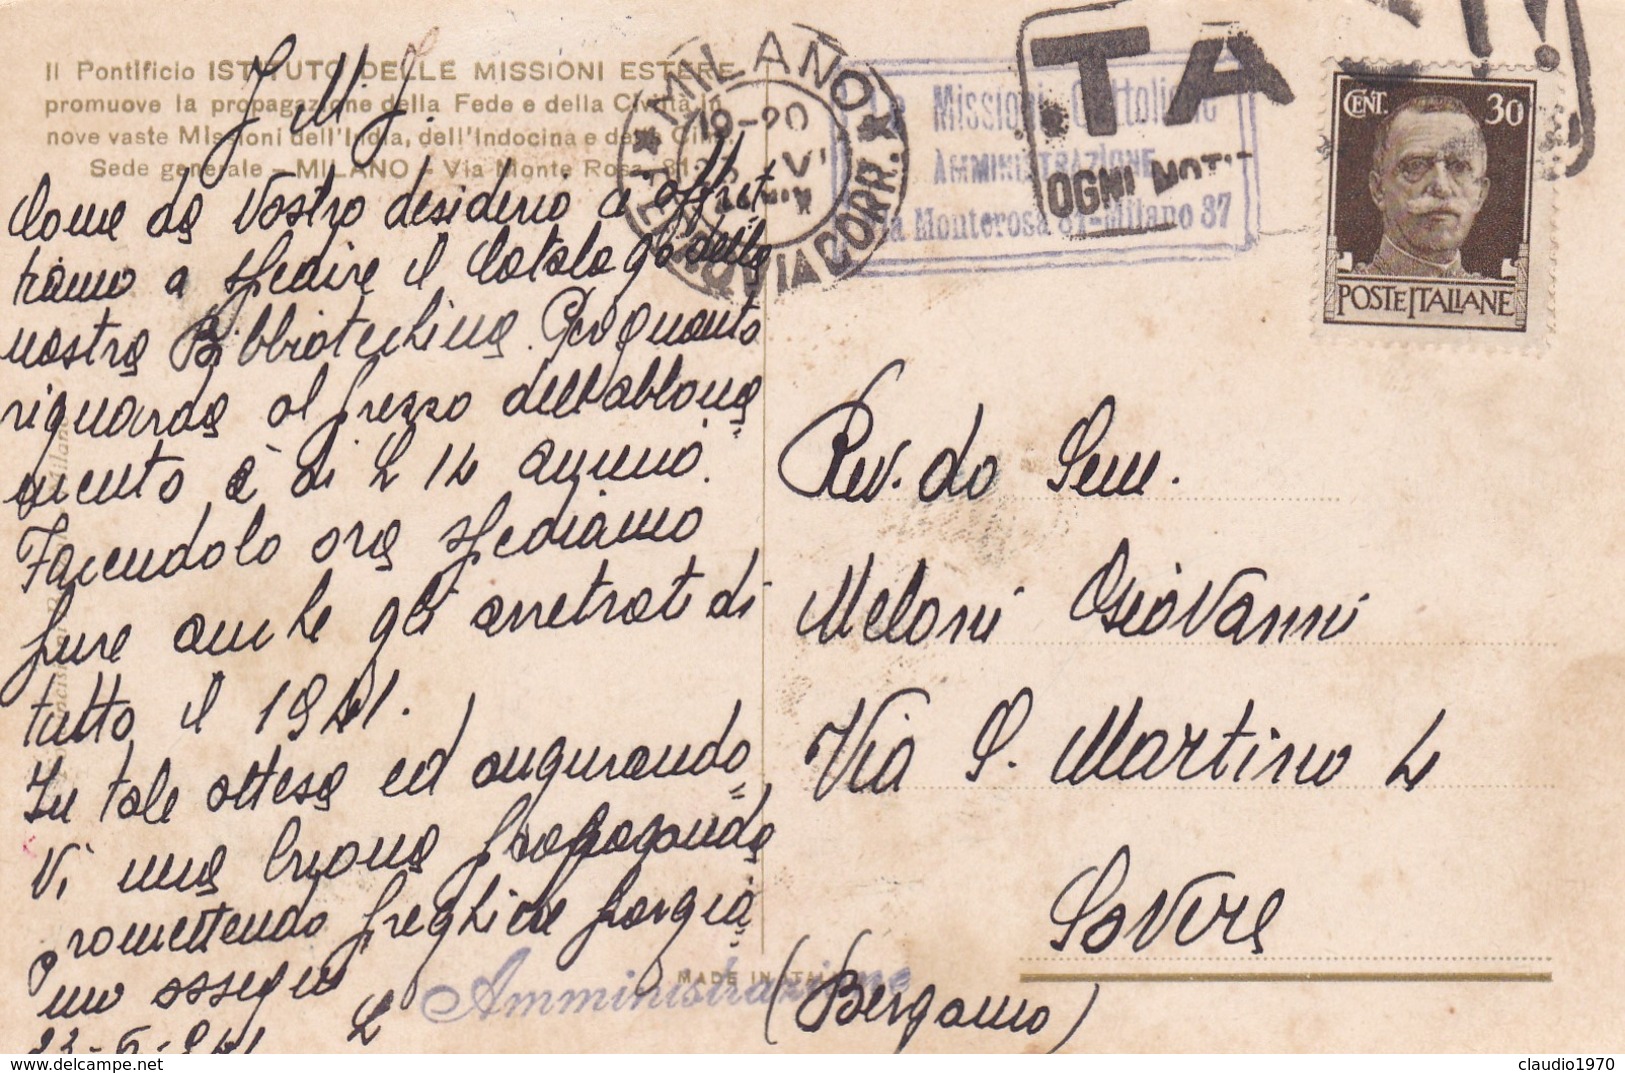 Il Pontificio ISTITUTO DELLE MISSIONI ESTERE
promuove la propagazione della Fede e della Civiltà in
nove vaste Missioni dell'India, dell'Indocina e della Cina
Sede generale — MILANO - Via Monte Rosa, 81
J. M. J.
Come da Vostro desiderio ci affret
tiamo a spedire il Catalogo della
nostra Bibliotechina. Per quanto
riguarda al prezzo dell'abbona=
mento è di L 14 annui.
Facendolo ora spediamo
pure anche gli arretrati di
tutto il 1941.
In tale attesa ed augurando=
Vi una buona propaganda
promettendo preghiere porgia
mo ossequi
23-6-941
L'Amministrazione
MILANO
19-20
VIA CORR.
Le Missioni Cattoliche
AMMINISTRAZIONE
Via Monterosa 81-Milano 37
TA
OGNI
CENT. 30
POSTE ITALIANE
Rev.do Sem.
Meloni Giovanni
Via S. Martino 4
Sovere
(Bergamo)
MADE IN ITALY
claudio1970